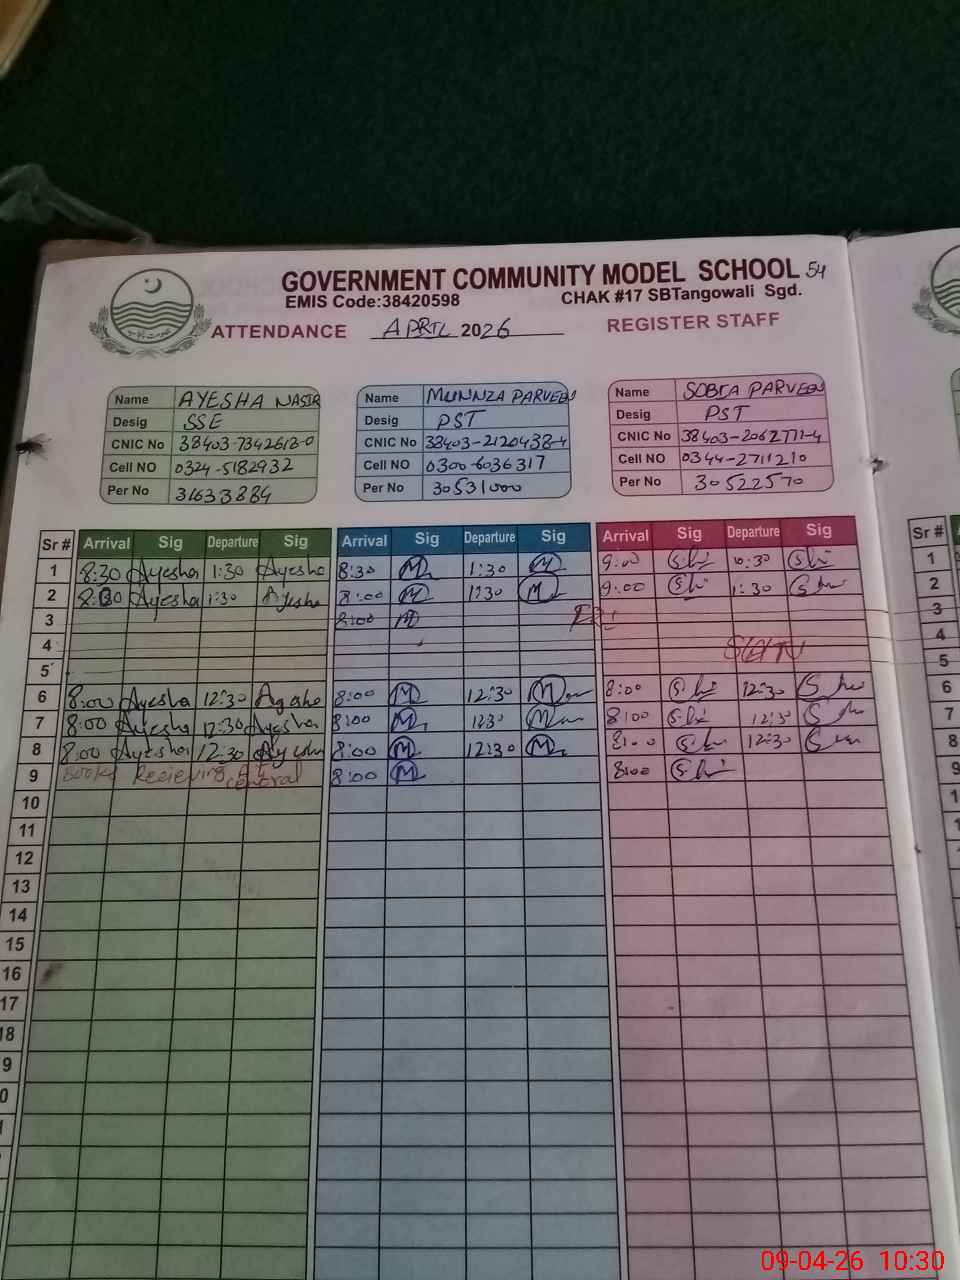 GOVERNMENT COMMUNITY MODEL SCHOOL 54
EMIS Code:38420598 CHAK #17 SBTangowali Sgd.
ATTENDANCE APRIL 2026 REGISTER STAFF
Name AYESHA NASIR
Desig SSE
CNIC No 38403-7342612-0
Cell NO 0324-5182932
Per No 31633884
Name MUNNZA PARVEEN
Desig PST
CNIC No 38403-2120438-4
Cell NO 0300-6036317
Per No 30531000
Name SOBIA PARVEEN
Desig PST
CNIC No 38403-2062771-4
Cell NO 0344-2711210
Per No 30522570
Sr # Arrival Sig Departure Sig Arrival Sig Departure Sig Arrival Sig Departure Sig
1 8:30 Ayesha 1:30 Ayesha 8:30 M 1:30 M 9:00 10:30
2 8:00 Ayesha 1:30 Ayesha 8:00 M 1:30 M 9:00 1:30
3 8:00 M FRI
4 SUN
5
6 8:00 Ayesha 12:30 Ayesha 8:00 M 12:30 8:00 12:30
7 8:00 Ayesha 12:30 Ayesha 8:00 M 1230 8:00 12:30
8 8:00 Ayesha 12:30 Ayesha 8:00 M 12:30 M 8:00 12:30
9 Books Recieving At central 8:00 M 8:00
10
11
12
13
14
15
16
17
18
9
0
1
1
2
3
4
5
6
7
8
9
1
09-04-26 10:30